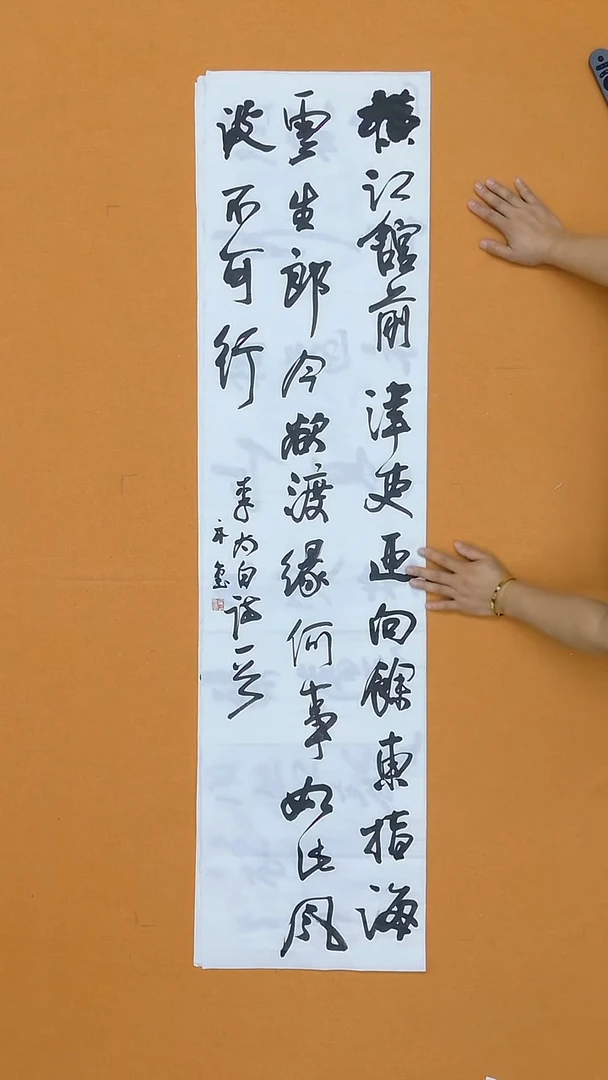 横江館前津吏迎向餘東指海
雲生郎今欲渡緣何事如此風
波不可行
李太白詩一首